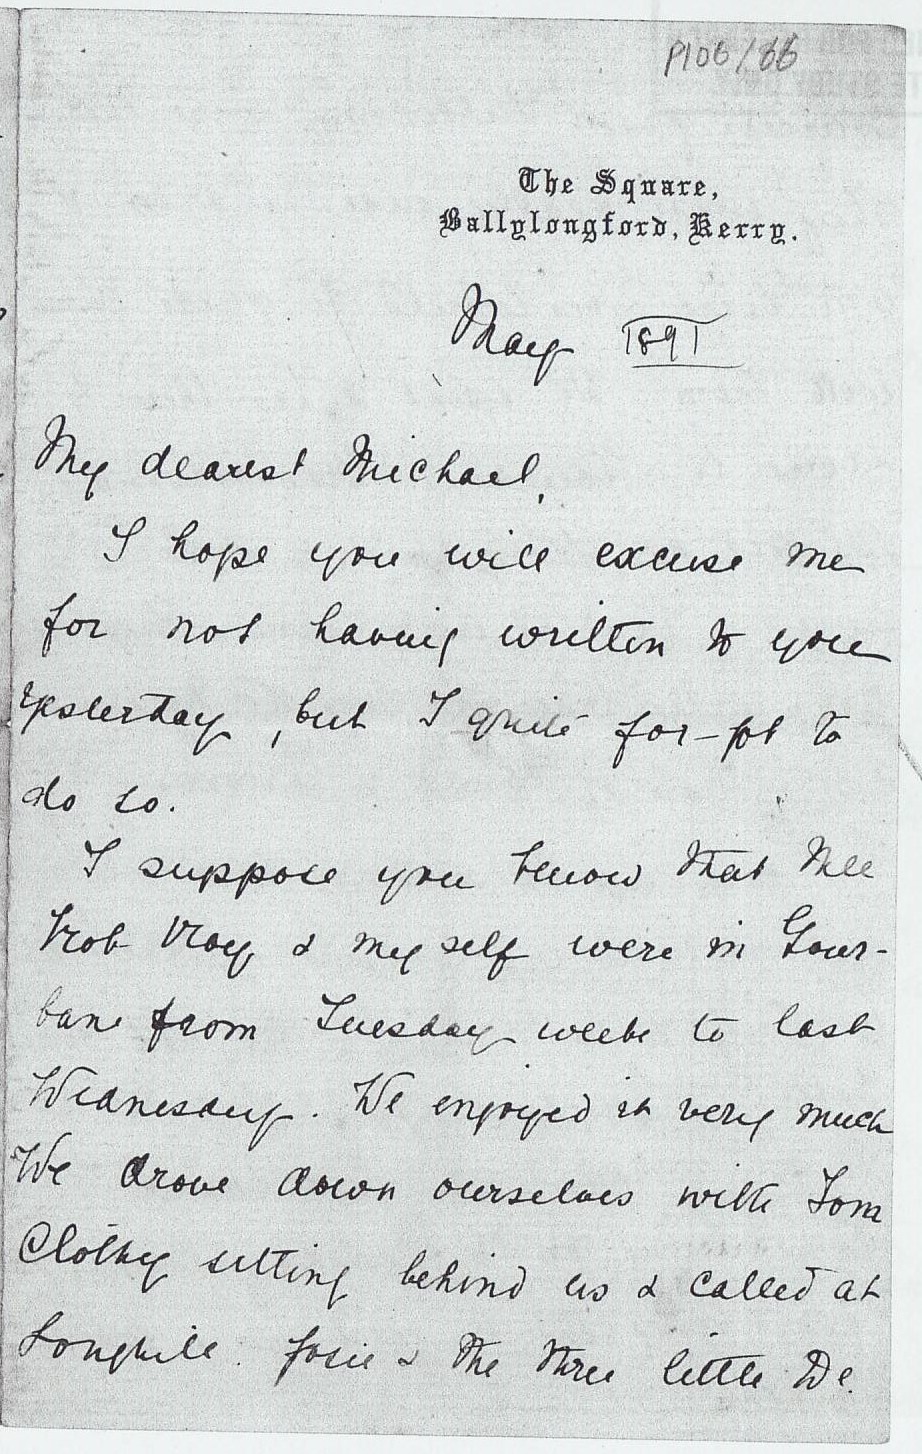 P106/66
The Square,
Ballylongford, Kerry.
May 1891
My dearest Michael,
I hope you will excuse me
for not having written to you
yesterday, but I quite for-got to
do so.
I suppose you know that
Roy & myself were in Gour-
bane from Tuesday week to last
Wednesday. We enjoyed it very much
We drove down ourselves with Tom
Clothy sitting behind us & called at
Loughill. Josie & the three little De.